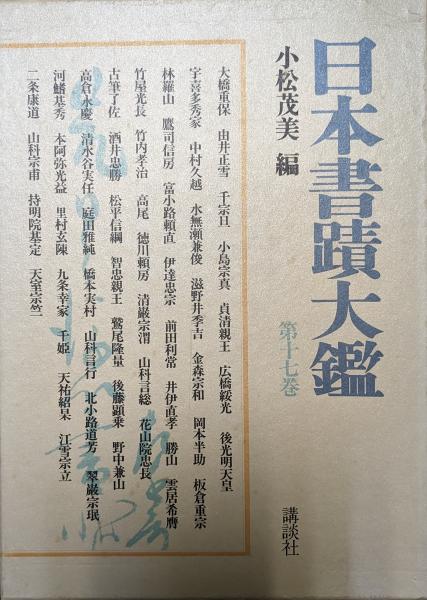 日本書蹟大鑑
第十七巻
小松茂美 編
講談社
大橋重保 由井正雪 千宗旦 小島宗真 貞清親王 広橋綏光 後光明天皇
宇喜多秀家 中村久越 水無瀬兼俊 滋野井季吉 金森宗和 岡本半助 板倉重宗
林羅山 鷹司信房 富小路頼直 伊達忠宗 前田利常 井伊直孝 勝山 雲居希膺
竹屋光長 竹内孝治 高尾 徳川頼房 清巌宗渭 山科言総 花山院忠長
古筆了佐 酒井忠勝 松平信綱 智忠親王 鷲尾隆量 後藤顕乗 野中兼山
高倉永慶 清水谷実任 庭田雅純 橋本実村 山科言行 北小路道芳 翠巌宗珉
河鰭基秀 本阿弥光益 里村玄陳 九条幸家 千姫 天祐紹杲 江雪宗立
二条康道 山科宗甫 持明院基定 天室宗竺